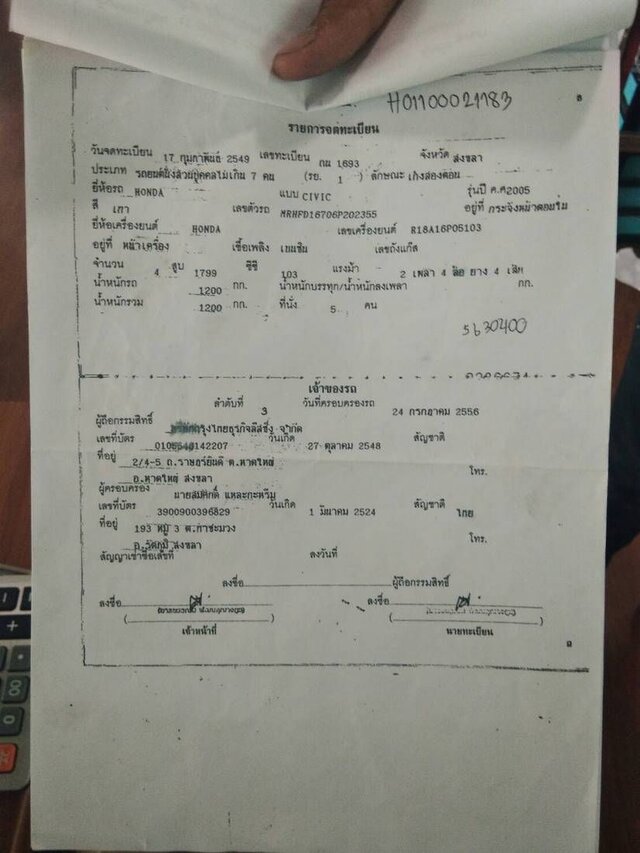 H01100021183
รายการจดทะเบียน
วันจดทะเบียน 17 กุมภาพันธ์ 2549 เลขทะเบียน กน 1693 จังหวัด สงขลา
ประเภท รถยนต์นั่งส่วนบุคคลไม่เกิน 7 คน (รย. 1 ) ลักษณะ เก๋งสองตอน
ยี่ห้อรถ HONDA แบบ CIVIC รุ่นปี ค.ศ2005
สี เทา เลขตัวรถ MRHFD16706P202355 อยู่ที่ กระจังหน้าตอนใน
ยี่ห้อเครื่องยนต์ HONDA เลขเครื่องยนต์ R18A16P05103
อยู่ที่ หน้าเครื่อง เชื้อเพลิง เบนซิน เลขถังแก๊ส
จำนวน 4 สูบ 1799 ซีซี 103 แรงม้า 2 เพลา 4 ล้อ ยาง 4 เส้น
น้ำหนักรถ 1200 กก. น้ำหนักบรรทุก/น้ำหนักลงเพลา กก.
น้ำหนักรวม 1200 กก. ที่นั่ง 5 คน
5630400
เจ้าของรถ
ลำดับที่ 3 วันที่ครอบครองรถ 24 กรกฎาคม 2556
ผู้ถือกรรมสิทธิ์ กรุงไทยธุรกิจลีสซิ่ง จำกัด
เลขที่บัตร วันเกิด 27 ตุลาคม 2548 สัญชาติ
ที่อยู่ 2/4-5 ถ.ราษฎร์ยินดี ต.หาดใหญ่
อ.หาดใหญ่ สงขลา โทร.
ผู้ครอบครอง นายสมศักดิ์ แหละกะหรีม
เลขที่บัตร 3900900396829 วันเกิด 1 มีนาคม 2524 สัญชาติ ไทย
ที่อยู่ 193 หมู่ 3 ต.กำชะมวง
อ.รัตภูมิ สงขลา โทร.
สัญญาเช่าซื้อเลขที่ ลงวันที่
ลงชื่อ ผู้ถือกรรมสิทธิ์
ลงชื่อ ลงชื่อ
( ) ( )
เจ้าหน้าที่ นายทะเบียน